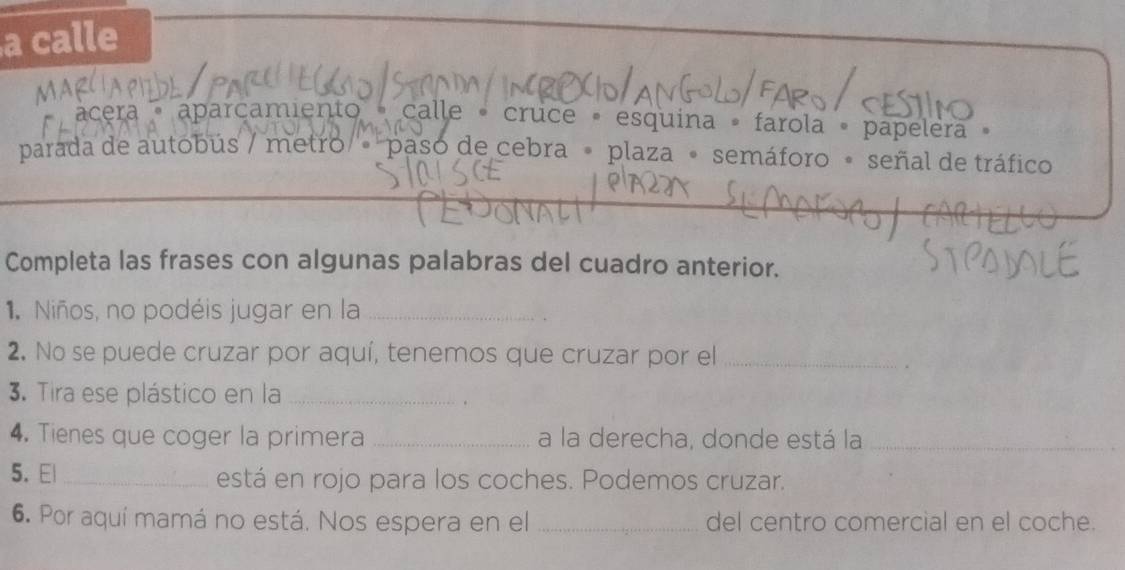 a calle
MARCIAPIEDE / PARCHEGGIO / STRADA / INCROCIO / ANGOLO / FARO / CESTINO
acera • aparcamiento • calle • cruce • esquina • farola • papelera •
FERMATA DEL AUTOBUS / METRO
parada de autobús / metro • paso de cebra • plaza • semáforo • señal de tráfico
STRISCE | PIAZZA
PEDONALI SEMAFORO / CARTELLO
STRADALE
Completa las frases con algunas palabras del cuadro anterior.
1. Niños, no podéis jugar en la ____.
2. No se puede cruzar por aquí, tenemos que cruzar por el ____.
3. Tira ese plástico en la ____.
4. Tienes que coger la primera ____ a la derecha, donde está la ____.
5. El ____ está en rojo para los coches. Podemos cruzar.
6. Por aquí mamá no está. Nos espera en el ____ del centro comercial en el coche.